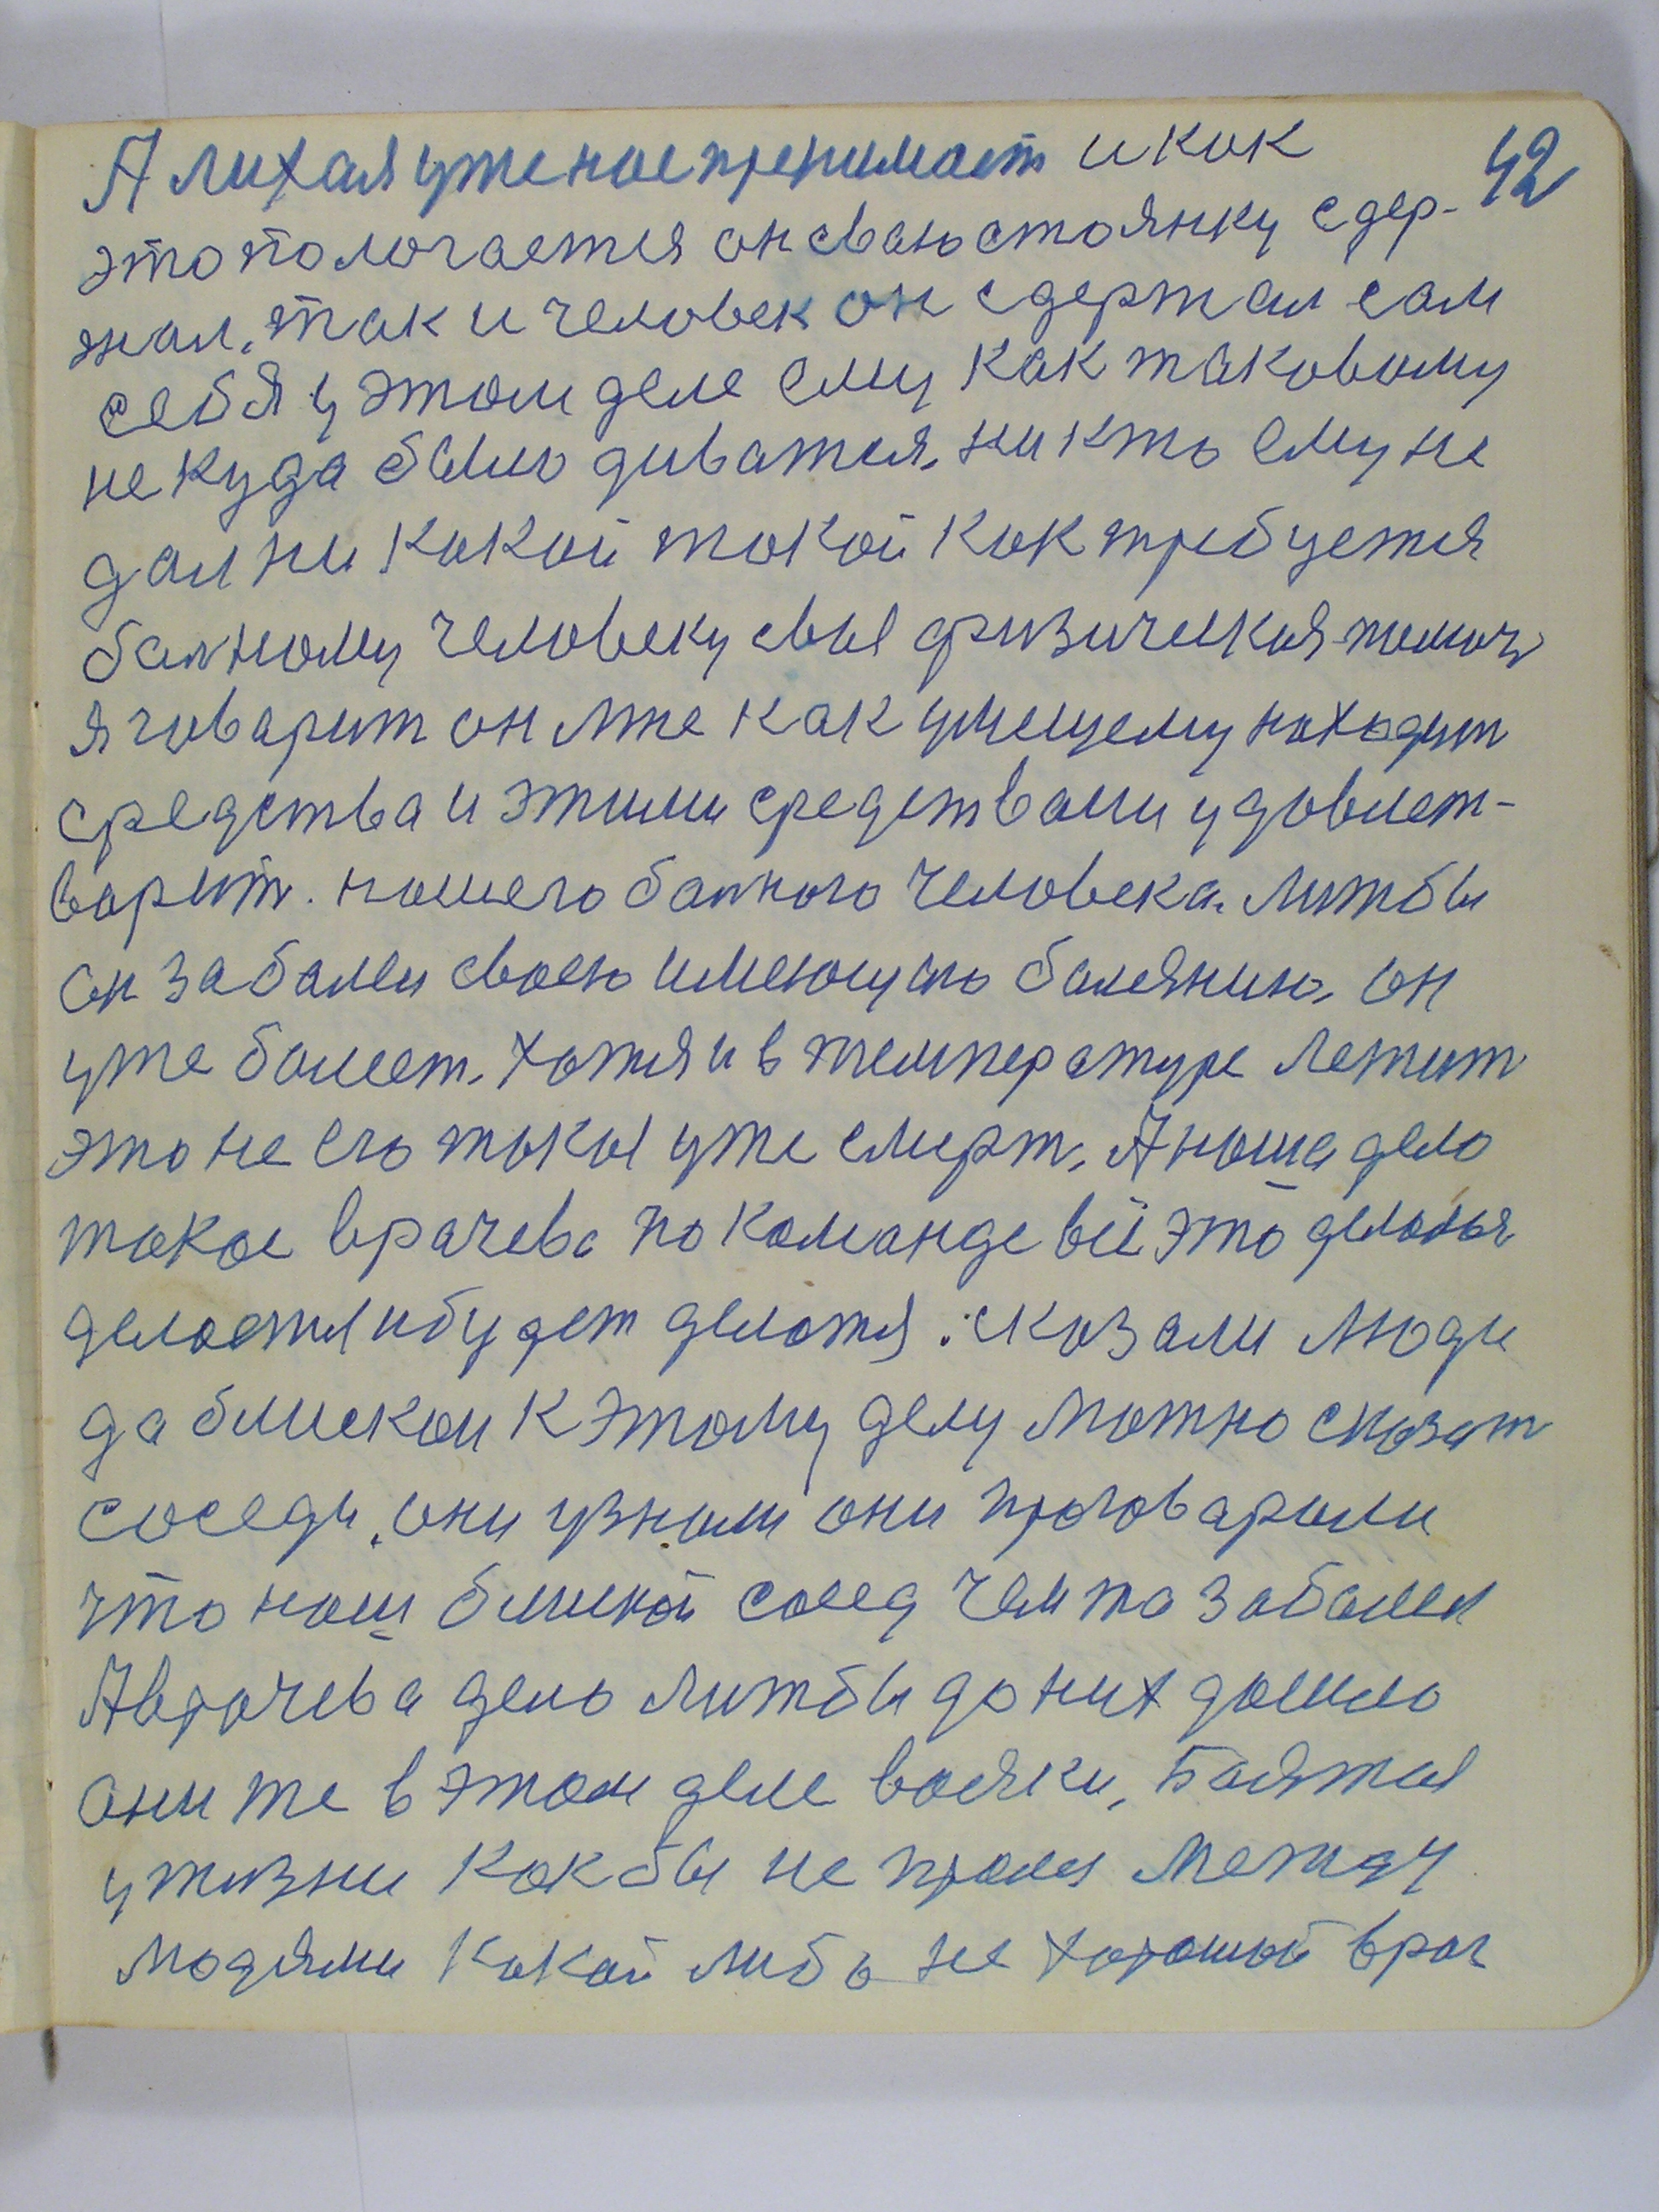 А лихая уже ное пренимает и как 42
это пологается он сваю стоянку здер-
жал, так и человек он сдержал сам
себя у этом деле ему как таковому
не куда было диватся, ни кто ему не
дал ни какой такой как требуется
балному человеку своя физическая помоч
я говарит он мне как умещему находит
средства и этими средствами удовлет-
варит. нашего балного человека. Лижбы
он забалел своею имеющую балезнию, он
уже балеет, хотя и в температуре лежит
это не его такая уже смерт, А наша дело
такое врачева по команде всё это делалося
делается и будет делатя: сказали люди
да блиской к этому делу можно сказат
соседи, они узнали они проговарили
что наш блиской сосед чем то забалел
А врачева дело лижбы до них дошло
они же в этом деле вояки, Баятся
у жизни как бы не пролез между
людями какой либо не хороший враг